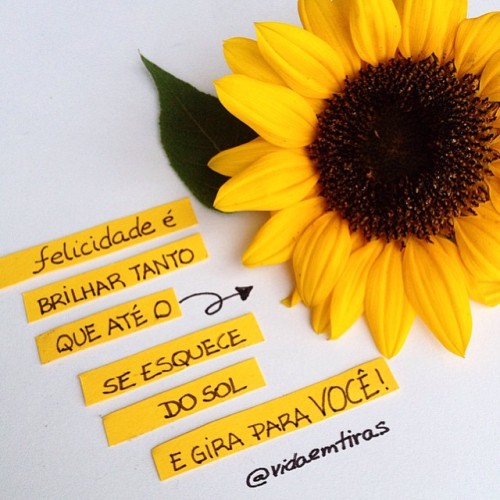 felicidade é
BRILHAR TANTO
QUE ATÉ O
SE ESQUECE
DO SOL
E GIRA PARA VOCÊ!
@vidaemtiras